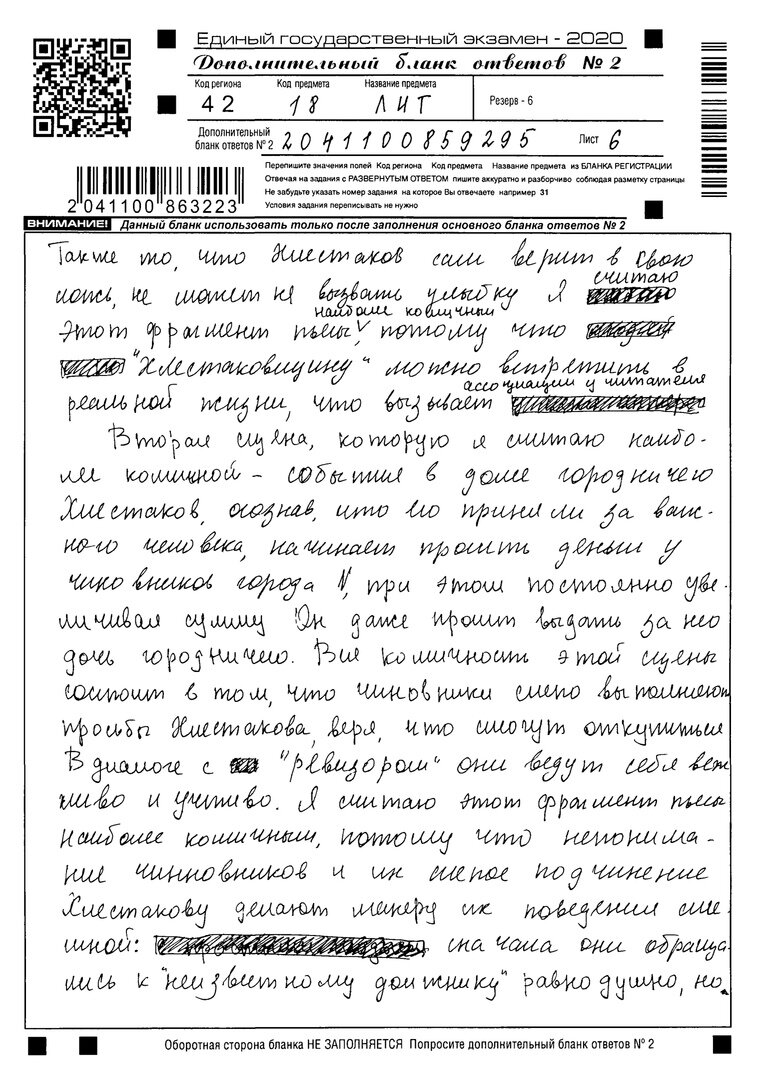 Единый государственный экзамен - 2020
Дополнительный бланк ответов № 2
Код региона Код предмета Название предмета
42 18 ЛИТ Резерв - 6
Дополнительный бланк ответов № 2 2041100859295 Лист 6
Перепишите значения полей Код региона Код предмета Название предмета из БЛАНКА РЕГИСТРАЦИИ
Отвечая на задания с РАЗВЕРНУТЫМ ОТВЕТОМ пишите аккуратно и разборчиво соблюдая разметку страницы
Не забудьте указать номер задания на которое Вы отвечаете например 31
Условия задания переписывать не нужно
2 041100 863223
ВНИМАНИЕ! Данный бланк использовать только после заполнения основного бланка ответов № 2
Также то, что Хлестаков сам верит в свою
ложь, не может не вызвать улыбку Я считаю
этот фрагмент пьесы наиболе комичным, потому что
"Хлестаковщину" можно встретить в
реальной жизни, что вызывает ассоциации у читателя
Вторая сцена, которую я считаю наибо-
лее комичной - события в доме городничего
Хлестаков, осознав, что его приняли за важ-
ного человека, начинает просить деньги у
чиновников города N, при этом постоянно уве-
личивая сумму Он даже просит выдать за него
дочь городничего. Вся комичность этой сцены
состоит в том, что чиновники слепо выполняют
просьбы Хлестакова, веря, что смогут откупиться
В диалоге с "ревизором" они ведут себя веж
ливо и учтиво. Я считаю этот фрагмент пьесы
наиболее комичным, потому что непонима-
ние чинновников и их слепое подчинение
Хлестакову делают манеру их поведения сме-
шной: сначала они обраща-
лись к "неизвестному должнику" равнодушно, но
Оборотная сторона бланка НЕ ЗАПОЛНЯЕТСЯ Попросите дополнительный бланк ответов № 2